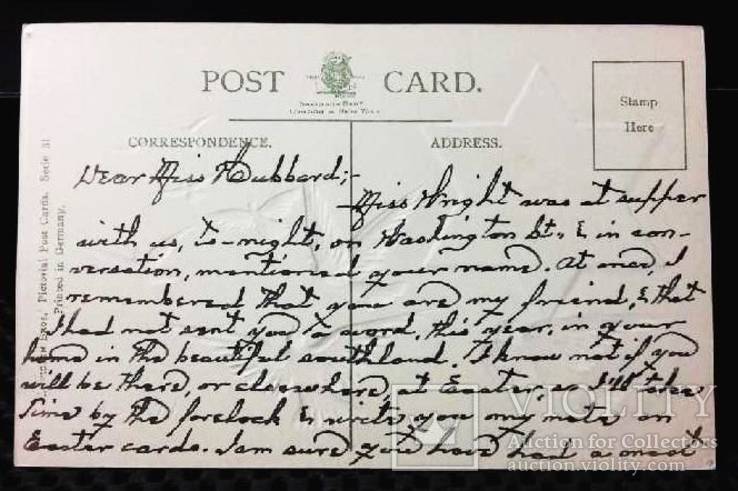 POST CARD.
Stamp
Here
CORRESPONDENCE.
ADDRESS.
Pictorial Post Cards. Serie 31
Printed in Germany.
Dear Miss Hubbard;-
Miss Wright was at supper
with us, to-night, on Washington St. & in con-
versation, mentioned your name. At once, I
remembered that you are my friend, & that
I had not sent you a word, this year, in your
home in the beautiful southland. I know not if you
will be there, or elsewhere, at Easter, so I'll take
time by the forelock & write you my note on
Easter cards. I am sure you have had a most
VIOLITY
Auction for Collectors
auction.violity.com